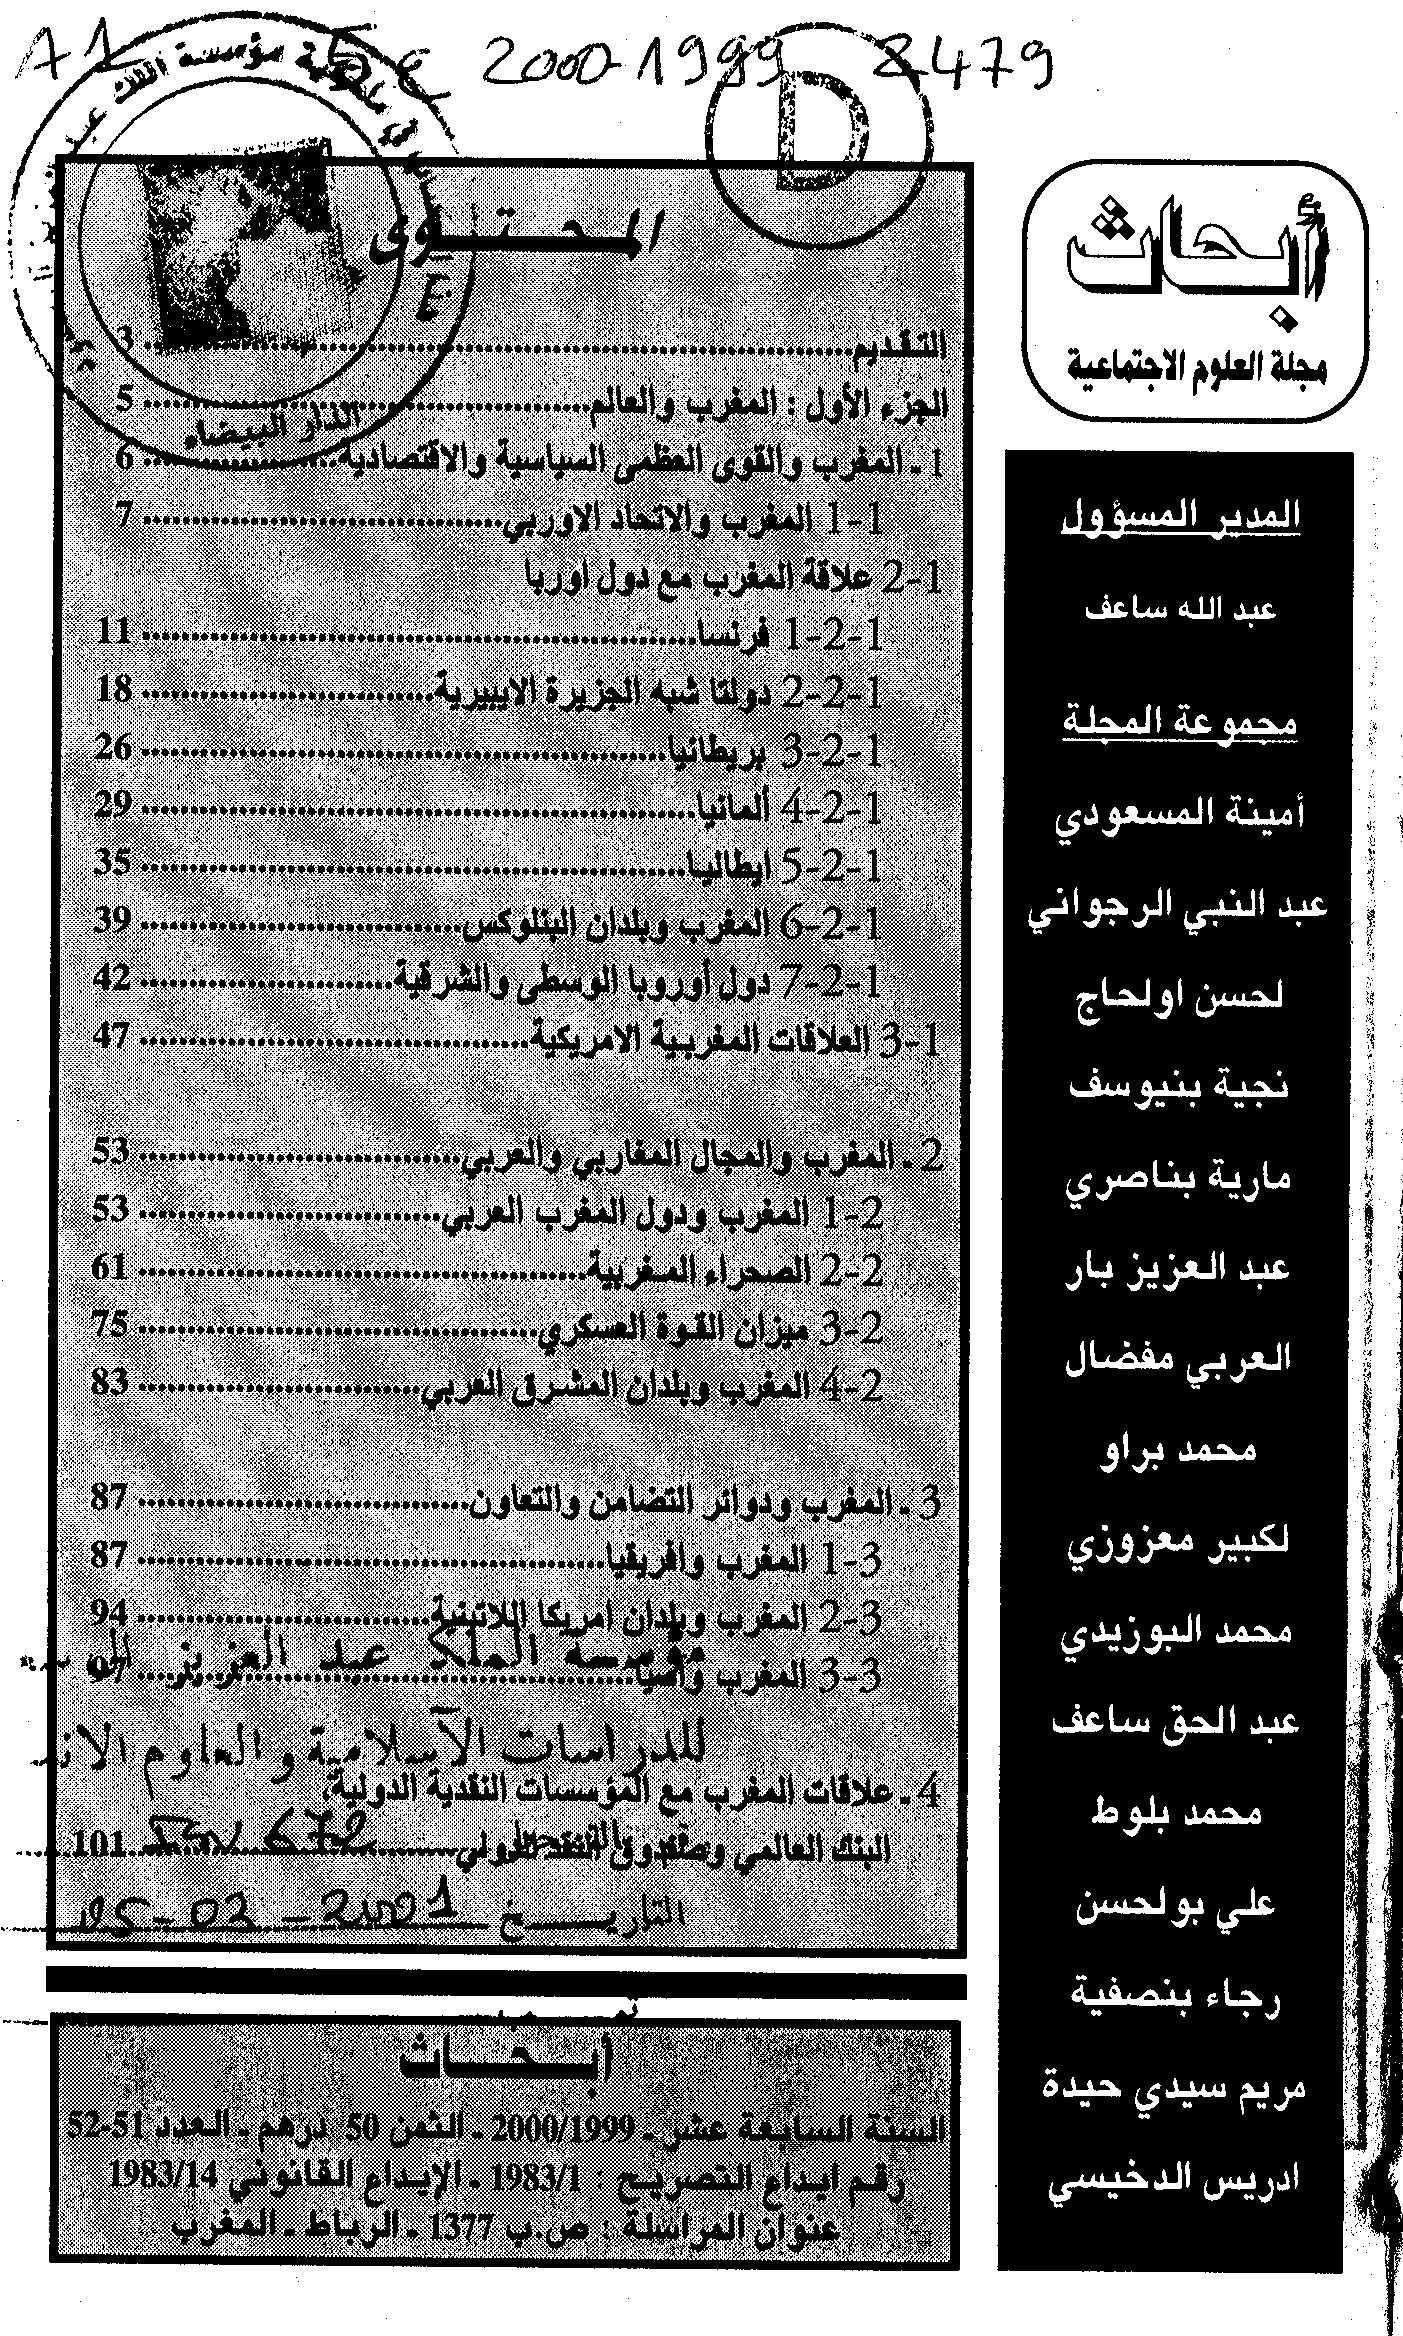 2000-1999 2479
D
أبحاث
مجلة العلوم الاجتماعية
المدير المسؤول
عبد الله ساعف
مجموعة المجلة
أمينة المسعودي
عبد النبي الرجواني
لحسن اولحاج
نجية بنيوسف
مارية بناصري
عبد العزيز بار
العربي مفضال
محمد براو
لكبير معزوزي
محمد البوزيدي
عبد الحق ساعف
محمد بلوط
علي بولحسن
رجاء بنصفية
مريم سيدي حيدة
ادريس الدخيسي
المحتوى
التقديم 3
الجزء الأول : المغرب والعالم 5
1 ـ المغرب والقوى العظمى السياسية والاقتصادية 6
1-1 المغرب والاتحاد الاوربي 7
2-1 علاقة المغرب مع دول اوربا
1-2-1 فرنسا 11
2-2-1 دولتا شبه الجزيرة الايبيرية 18
3-2-1 بريطانيا 26
4-2-1 ألمانيا 29
5-2-1 ايطاليا 35
6-2-1 المغرب وبلدان البنلوكس 39
7-2-1 دول أوروبا الوسطى والشرقية 42
3-1 العلاقات المغربية الامريكية 47
2 ـ المغرب والمجال المغاربي والعربي 53
1-2 المغرب ودول المغرب العربي 53
2-2 الصحراء المغربية 61
3-2 ميزان القوة العسكري 75
4-2 المغرب وبلدان المشرق العربي 83
3 ـ المغرب ودوائر التضامن والتعاون 87
1-3 المغرب وافريقيا 87
2-3 المغرب وبلدان امريكا اللاتينية 94
مؤسسة الملك عبد العزيز
3-3 المغرب وآسيا 97
للدراسات الاسلامية والعلوم
4 ـ علاقات المغرب مع المؤسسات النقدية الدولية،
البنك العالمي وصندوق النقد الدولي 101
672
التاريخ 2001
الدار البيضاء
أبحاث
السنة السابعة عشر ـ 2000/1999 ـ الثمن 50 درهم ـ العدد 51-52
رقم ايداع التصريح : 1983/1 ـ الإيداع القانوني 1983/14
عنوان المراسلة : ص.ب 1377 ـ الرباط ـ المغرب